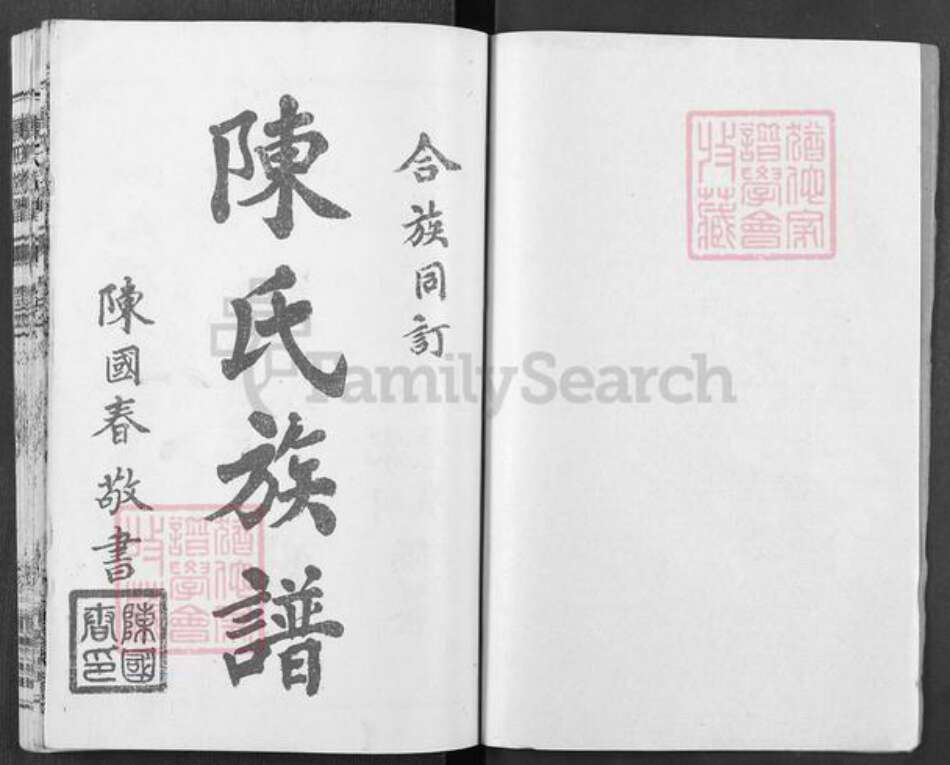 猶他家
譜學會
收藏
合族同訂
陳氏族譜
陳國春敬書
陳國
春印
猶他家
譜學會
收藏
FamilySearch